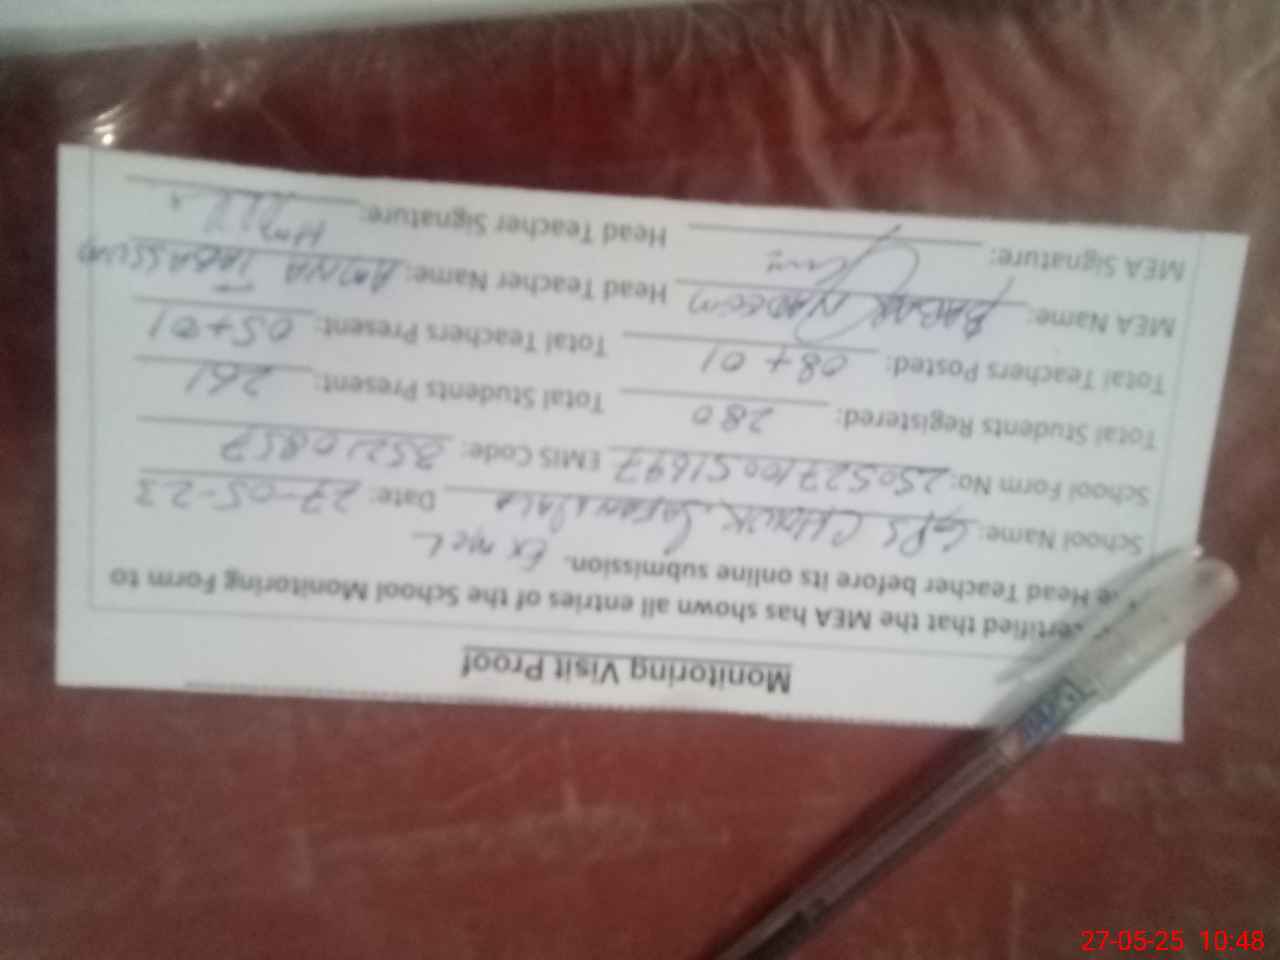 Monitoring Visit Proof
certified that the MEA has shown all entries of the School Monitoring Form to
Head Teacher before its online submission. Ex MCL
School Name: GPS CHOWK Date: 27-05-23
School Form No: 25052710051697 EMIS Code: 35210857
Total Students Registered: 280 Total Students Present: 261
Total Teachers Posted: 08+01 Total Teachers Present: 05+01
MEA Name: BABAR NADEEM Head Teacher Name: AMNA TABASSUM
MEA Signature: Head Teacher Signature:
27-05-25 10:48